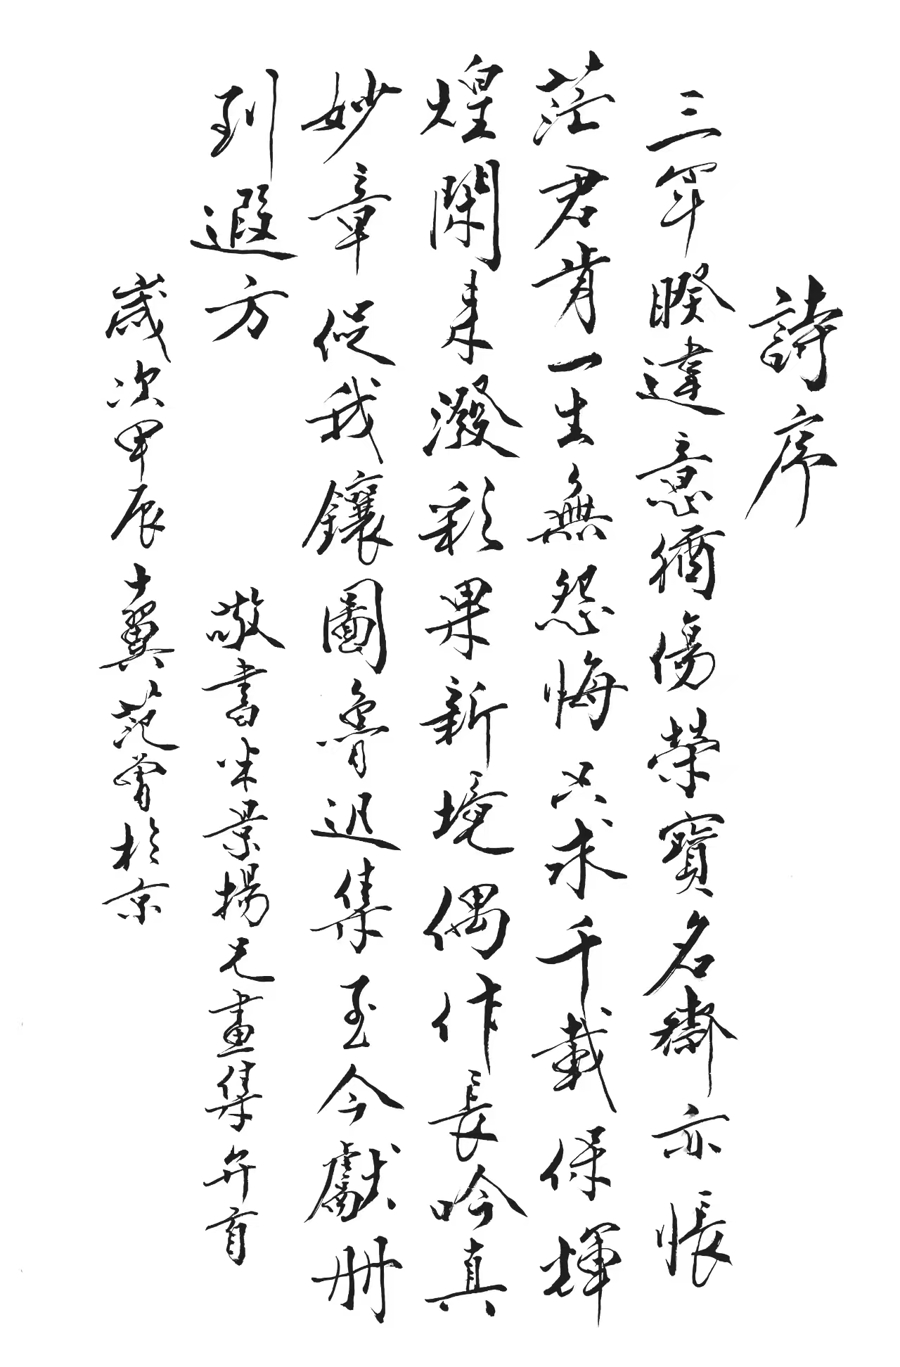 詩序
三年睽違意猶傷榮寶名齋亦悵
茫君肯一生無怨悔只求千載保輝
煌閑來潑彩果新境偶作長吟真
妙章促我鑲圖魯迅集至今獻冊
到遐方
敬書米景揚兄畫集弁首
歲次甲辰十翼范曾於京